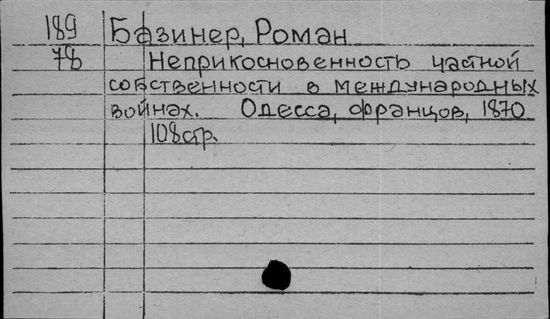 189 Базинер, Роман
78 Неприкосновенность частной
собственности в международных
войнах. Одесса, Францов, 1870
108стр.